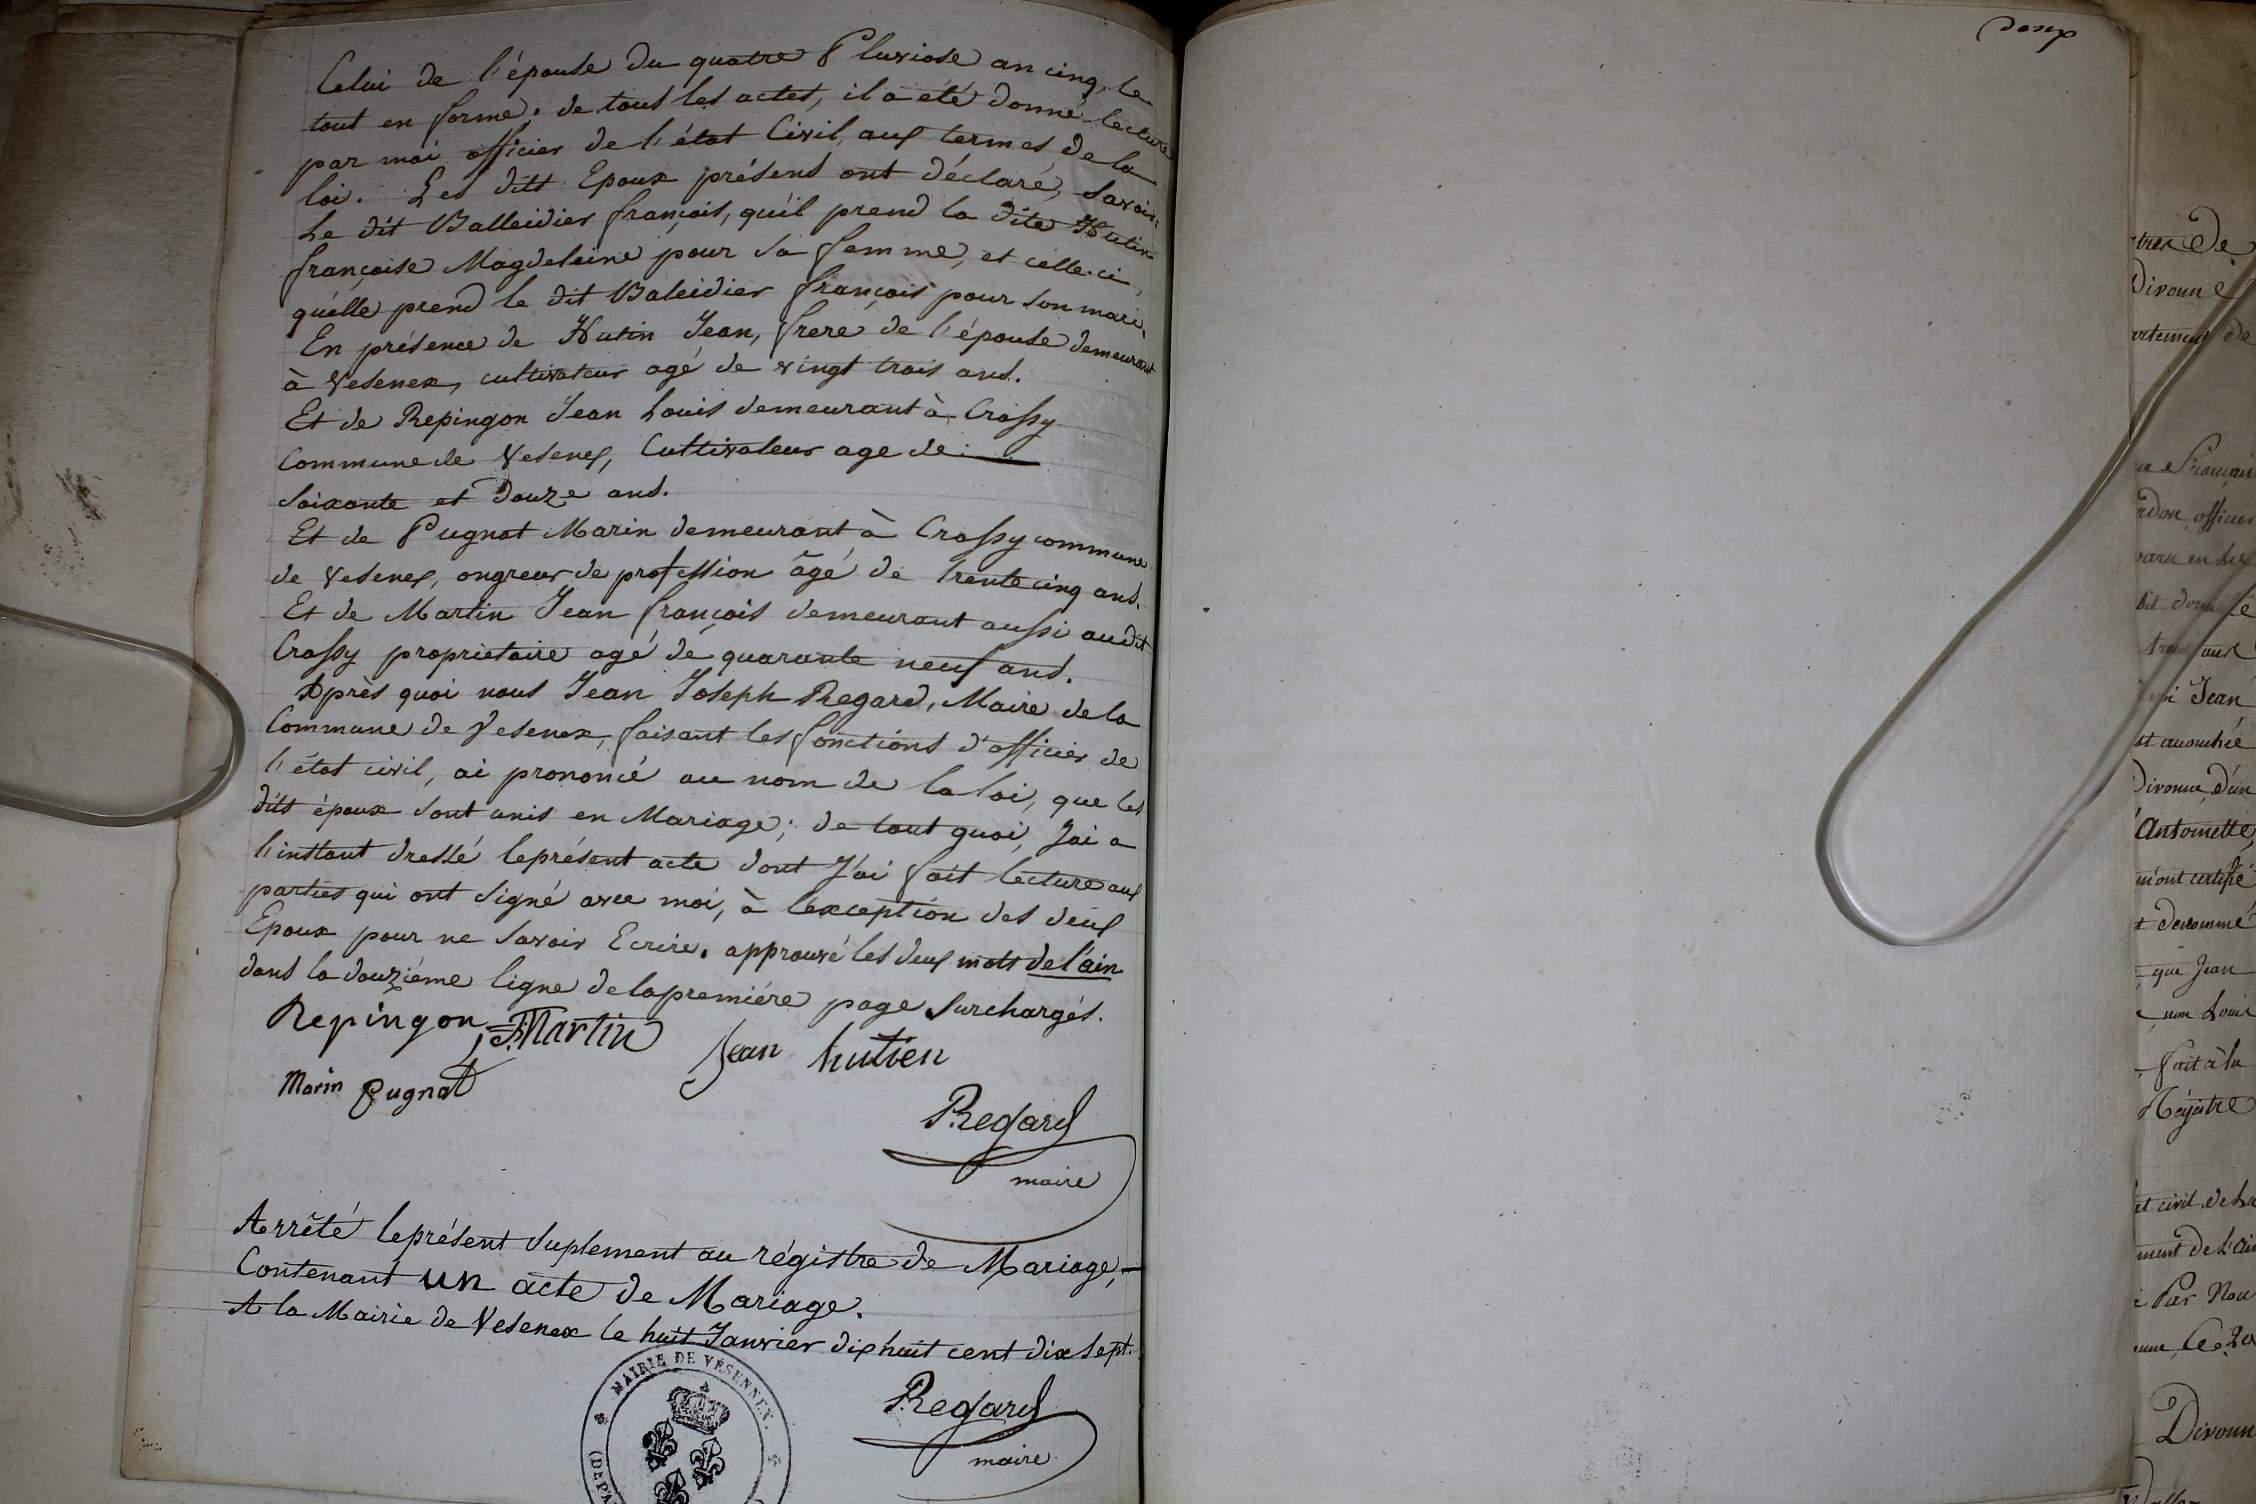 Celui de l'épouse du quatre Pluviose an cinq, le
tout en forme. de tous les actes, il a été donné lecture
par moi officier de l'état Civil, aux termes de la
loi. Les dits Epoux présens ont déclaré, Savoir:
Le dit Balleidier françois, qu'il prend la dite Hutin
françoise Magdeleine pour sa femme, et celle-ci,
qu'elle prend le dit Baleidier françois pour son mari.
En présence de Hutin Jean, frere de l'épouse demeurant
à Vesenex, cultivateur agé de vingt trois ans.
Et de Repingon Jean Louis demeurant à Crassy
Commune de Vesenex, Cultivateur age de
Soixante et douze ans.
Et de Pugnat Marin demeurant à Crassy commune
de Vesenex, ongreur de profession âgé de trente cinq ans.
Et de Martin Jean françois demeurant aussi audit
Crassy propriétaire agé de quarante neuf ans.
Après quoi nous Jean Joseph Regard, Maire de la
Commune de Vesenex, faisant les fonctions d'officier de
l'état civil, ai prononcé au nom de la loi, que les
dits époux sont unis en Mariage; de tout quoi, J'ai a
l'instant dressé le présent acte dont J'ai fait lecture aux
parties qui ont signé avec moi, à l'exception des deux
Epoux pour ne savoir Ecrire. approuvé les deux mots de l'ain
dans la douzième ligne de la première page Surchargés.
Repingon J. Martin
Jean hutien
Marin Pugnat
Regard
maire
Arrêté le présent suplement au régistre de Mariage,
Contenant un acte de Mariage.
A la Mairie de Vesenex le huit Janvier dix huit cent dix sept.
MAIRIE DE VÉSENNEX.
Regard
maire
Divonne
artement de
françois
officier
Jean
est accouchée
Divonne, d'un
Antoinette,
m'ont certifié
denommé
que Jean
nom Louis
fait à la
Régistre
civil de la
ment de l'Ain
Par Nou